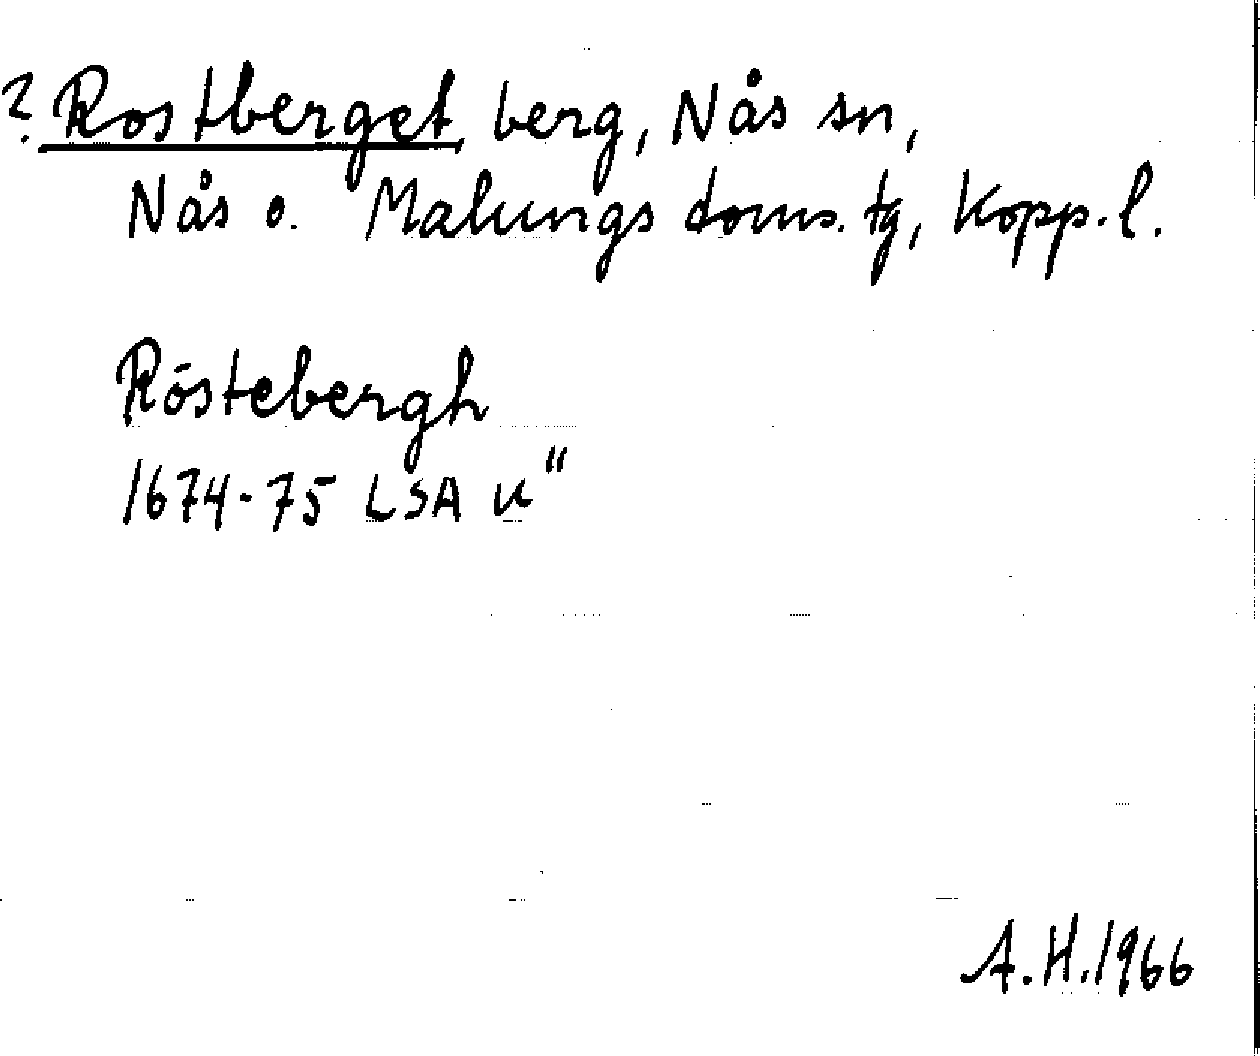 ? Rostberget berg, Nås sn,
Nås o. Malungs doms. tg, Kopp. l.
Röstebergh
1674-75 LSA u"
A.H. 1966